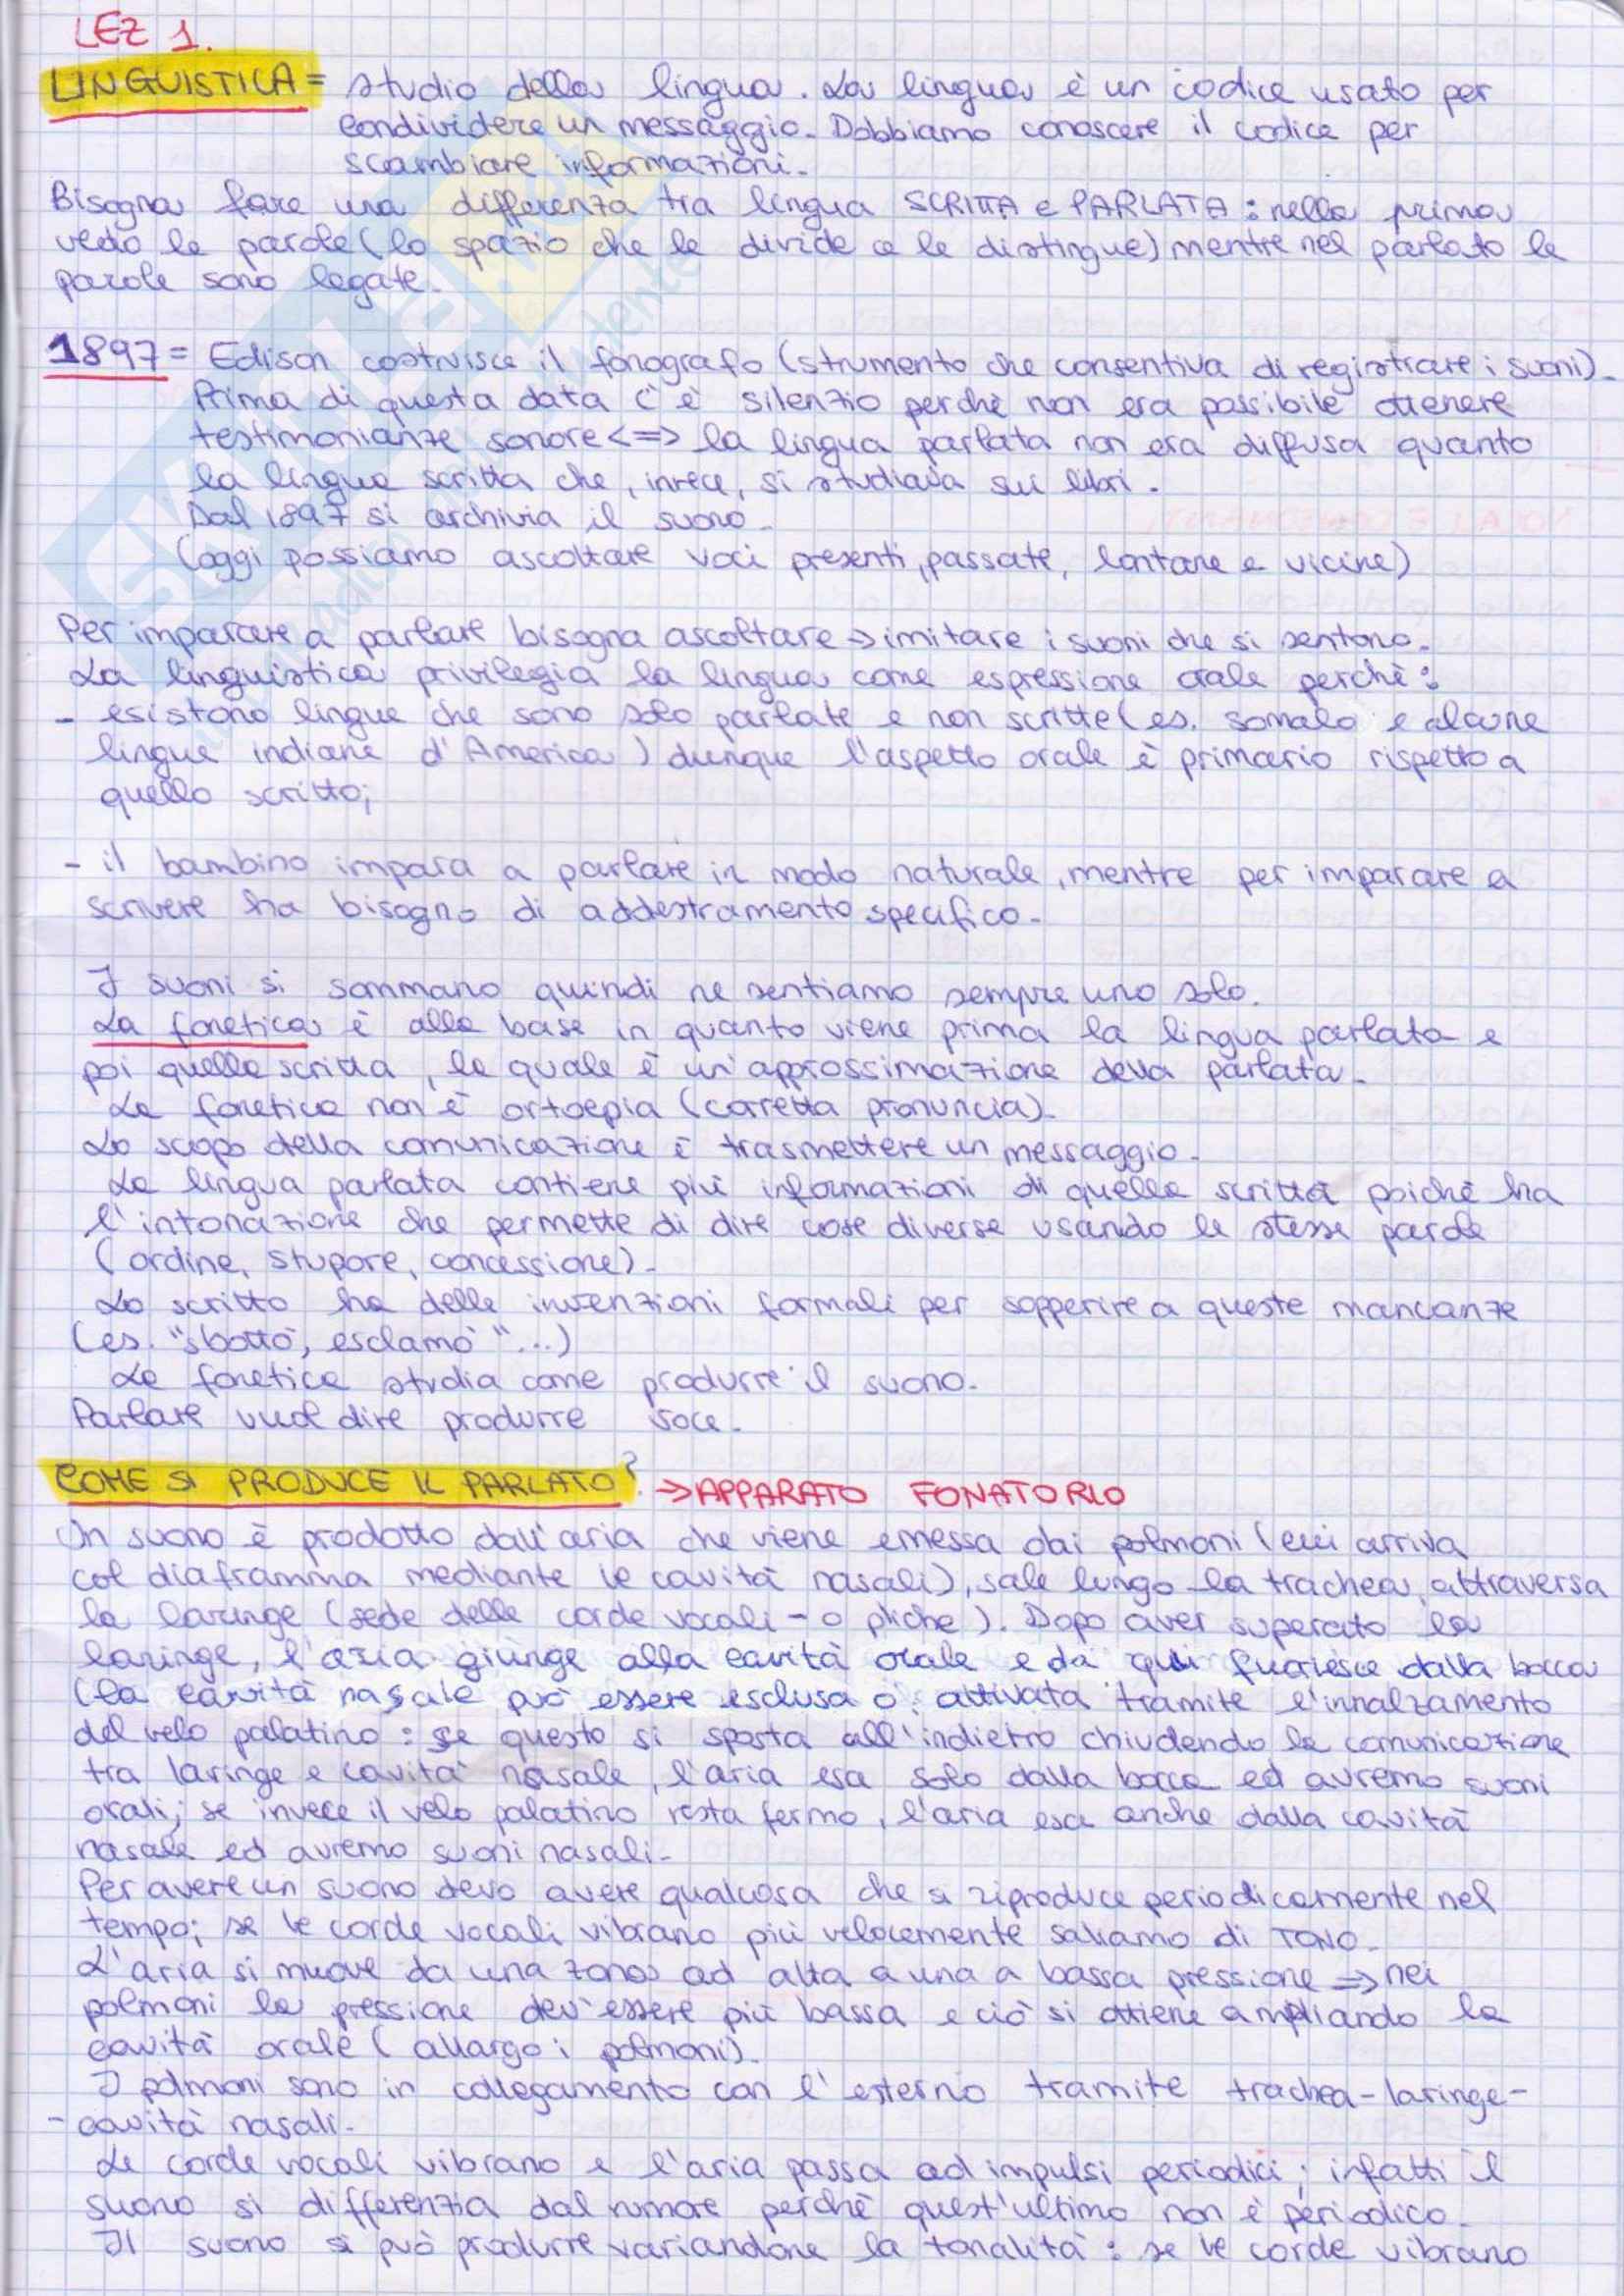 LEZ 1.
LINGUISTICA = studio della lingua. La lingua è un codice usato per
condividere un messaggio. Dobbiamo conoscere il codice per
scambiare informazioni.
Bisogna fare una differenza tra lingua SCRITTA e PARLATA: nella prima
vedo le parole (lo spazio che le divide e le distingue) mentre nel parlato le
parole sono legate.
1897 = Edison costruisce il fonografo (strumento che consentiva di registrare i suoni).
Prima di questa data c'è silenzio perchè non era possibile ottenere
testimonianze sonore <=> la lingua parlata non era diffusa quanto
la lingua scritta che, invece, si studiava sui libri.
Dal 1897 si archivia il suono.
(oggi possiamo ascoltare voci presenti, passate, lontane e vicine)
Per imparare a parlare bisogna ascoltare → imitare i suoni che si sentono.
La linguistica privilegia la lingua come espressione orale perchè:
- esistono lingue che sono solo parlate e non scritte (es. somalo e alcune
lingue indiane d'America) dunque l'aspetto orale è primario rispetto a
quello scritto;
- il bambino impara a parlare in modo naturale, mentre per imparare a
scrivere ha bisogno di addestramento specifico.
I suoni si sommano quindi ne sentiamo sempre uno solo.
La fonetica è alla base in quanto viene prima la lingua parlata e
poi quella scritta, la quale è un'approssimazione della parlata.
La fonetica non è ortoepia (corretta pronuncia).
Lo scopo della comunicazione è trasmettere un messaggio.
La lingua parlata contiene più informazioni di quella scritta poichè ha
l'intonazione che permette di dire cose diverse usando le stesse parole
(ordine, stupore, concessione).
Lo scritto ha delle invenzioni formali per sopperire a queste mancanze
(es. "sbottò, esclamò"...)
La fonetica studia come produrre il suono.
Parlare vuol dire produrre voce.
COME SI PRODUCE IL PARLATO? → APPARATO FONATORIO
Un suono è prodotto dall'aria che viene emessa dai polmoni (cui arriva
col diaframma mediante le cavità nasali), sale lungo la trachea, attraversa
la laringe (sede delle corde vocali - o pliche). Dopo aver superato la
laringe, l'aria giunge alla cavità orale e da qui fuoriesce dalla bocca
(la cavità nasale può essere esclusa o attivata tramite l'innalzamento
del velo palatino: se questo si sposta all'indietro chiudendo la comunicazione
tra laringe e cavità nasale, l'aria esce solo dalla bocca ed avremo suoni
orali; se invece il velo palatino resta fermo, l'aria esce anche dalla cavità
nasale ed avremo suoni nasali.
Per avere un suono devo avere qualcosa che si riproduce periodicamente nel
tempo; se le corde vocali vibrano più velocemente saliamo di TONO.
L'aria si muove da una zona ad alta a una a bassa pressione => nei
polmoni la pressione dev'essere più bassa e ciò si ottiene ampliando la
cavità orale (allargo i polmoni).
I polmoni sono in collegamento con l'esterno tramite trachea-laringe-
-cavità nasali.
Le corde vocali vibrano e l'aria passa ad impulsi periodici; infatti il
suono si differenzia dal rumore perchè quest'ultimo non è periodico.
Il suono si può produrre variandone la tonalità: se le corde vibrano